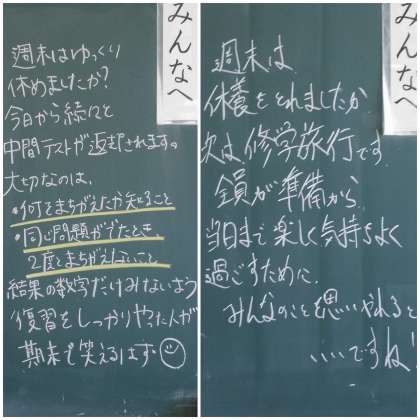 みんなへ
週末はゆっくり
休めましたか?
今日から続々と
中間テストが返却されます。
大切なのは、
・何をまちがえたか知ること
・同じ問題がでたとき、
2度とまちがえないこと
結果の数字だけみないよう
復習をしっかりやった人が
期末で笑えるはず☺
みんなへ
週末は、
休養をとれましたか
次は修学旅行です。
全員が準備から、
当日まで楽しく気持ちよく
過ごすために、
みんなのことを思いやれると
いいですね!